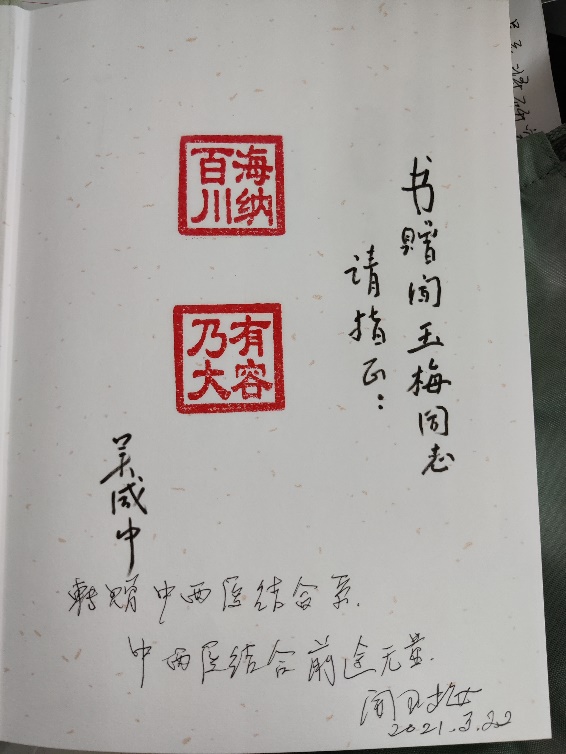 书赠闻玉梅同志
请指正:
海纳
百川
有容
乃大
吴咸中
转赠中西医结合系.
中西医结合前途无量.
闻玉梅
2021.3.22